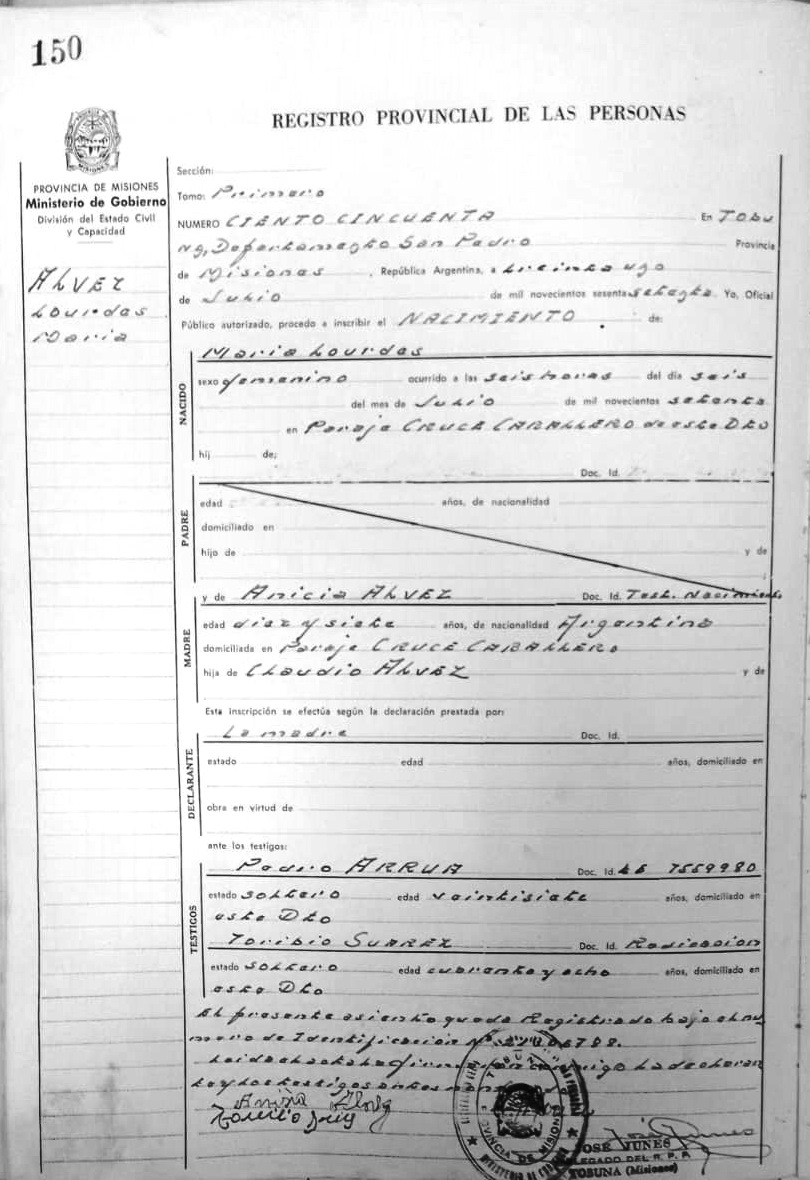 150
REGISTRO PROVINCIAL DE LAS PERSONAS
PROVINCIA DE MISIONES
Ministerio de Gobierno
División del Estado Civil
y Capacidad
ALVEZ
Lourdes
Maria
Sección:
Tomo: Primero
NUMERO CIENTO CINCUENTA En TOBU
NA, Departamento San Pedro Provincia
de Misiones , República Argentina, a treinta uno
de Julio de mil novecientos sesenta setenta Yo, Oficial
Público autorizado, procedo a inscribir el NACIMIENTO de:
NACIDO
Maria Lourdes
sexo femenino ocurrido a las seis horas del día seis
del mes de Julio de mil novecientos setenta
en Paraje CRUCE CABALLERO de este Dto
hij de;
PADRE
Doc. Id.
edad años, de nacionalidad
domiciliado en
hijo de y de
MADRE
y de Anicia ALVEZ Doc. Id. Test. Nacimiento
edad diez y siete años, de nacionalidad Argentina
domiciliada en Paraje CRUCE CABALLERO
hija de Claudio ALVEZ y de
Esta inscripción se efectúa según la declaración prestada por:
DECLARANTE
La madre Doc. Id.
estado edad años, domiciliado en
obra en virtud de
ante los testigos:
TESTIGOS
Pedro ARRUA Doc. Id. 7559980
estado soltero edad veintisiete años, domiciliado en
este Dto
Toribio SUAREZ Doc. Id. Radicacion
estado soltero edad cuarenta y ocho años, domiciliado en
este Dto
El presente asiento queda Registrado bajo el nu
mero de Identificación Nº
Leida el acta la firman conmigo la declaran
te y los testigos antes
TOBUNA
PROVINCIA DE MISIONES
MINISTERIO DE GOBIERNO
JOSE JUNES
DELEGADO DEL R. P. P.
TOBUNA (Misiones)